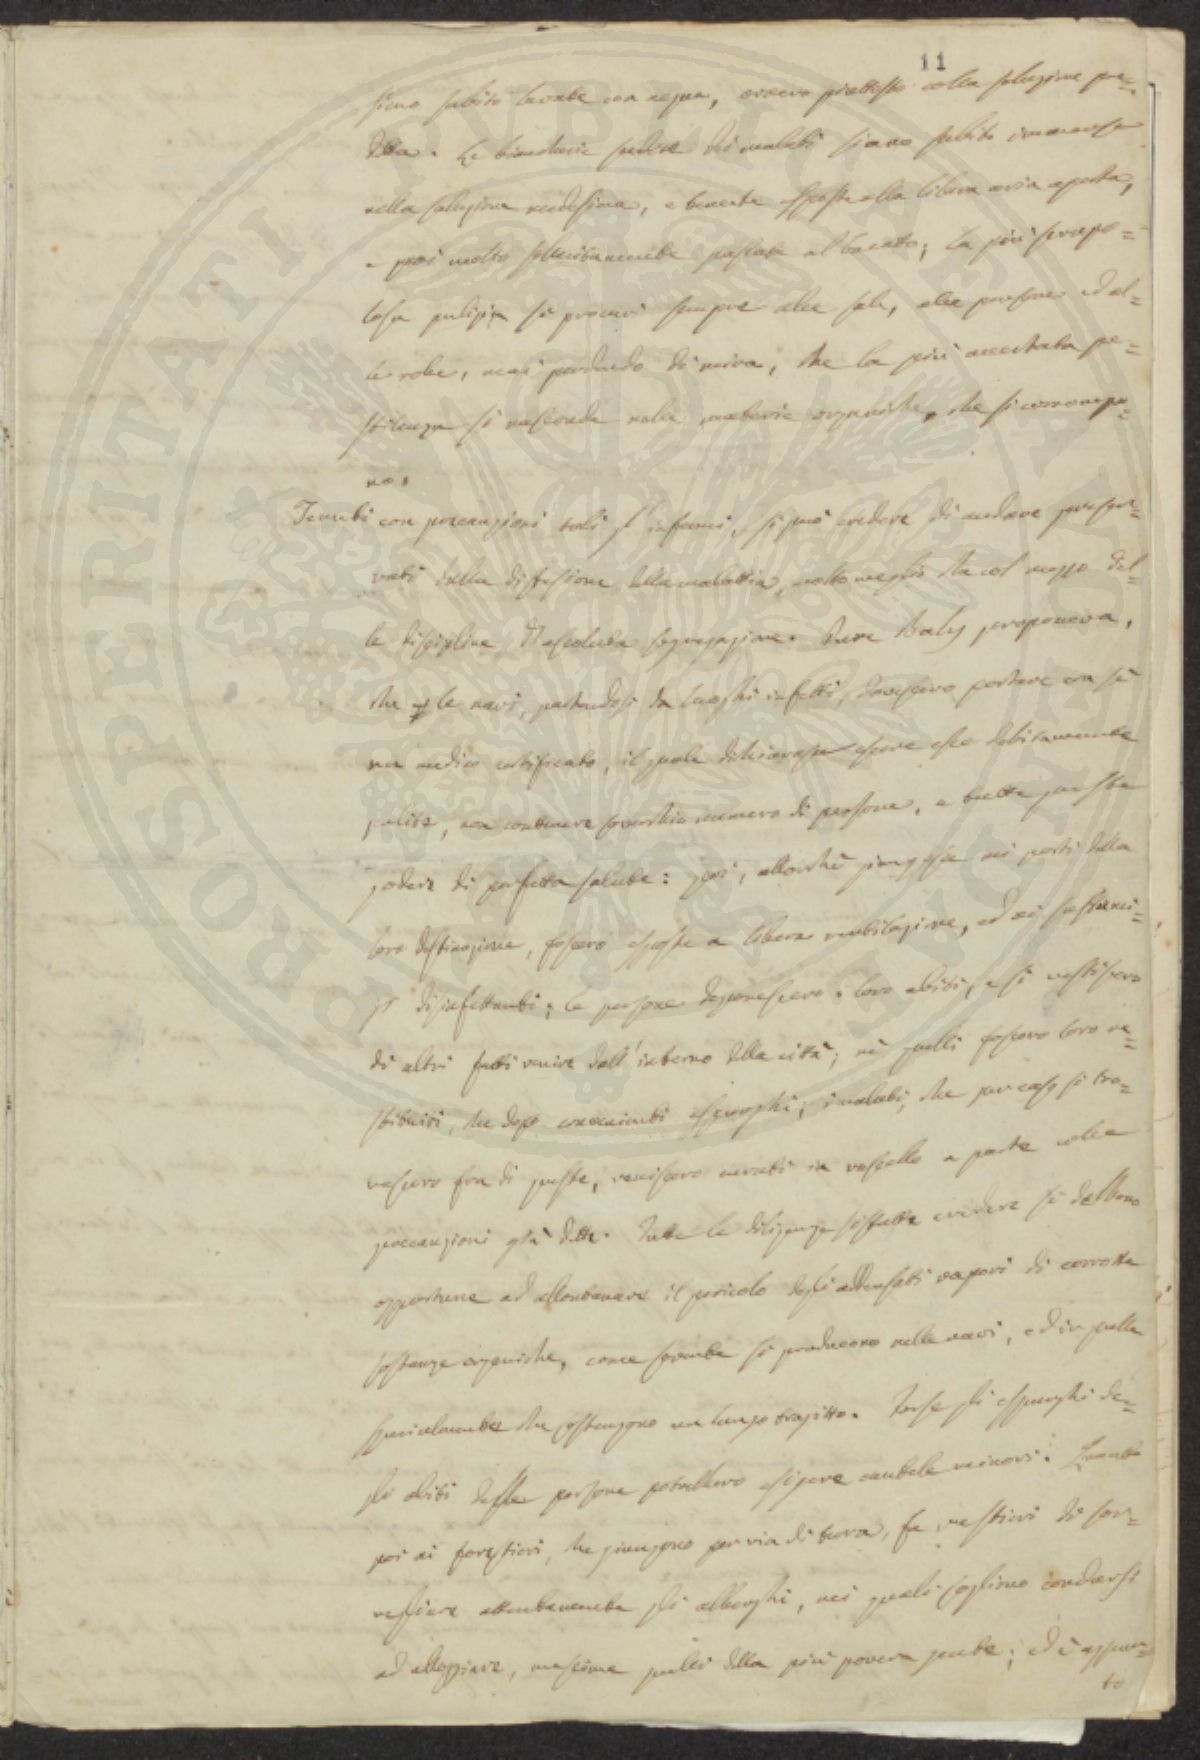 11
sieno subito lavate con acqua, ovvero piuttosto colla soluzione pre=
detta. Le biancherie sudice dei malati siano subito immerse
nella soluzione medesima, e tenute esposte alla libera aria aperta,
e poi molto sollecitamente passate al bucato; la più scrupo=
losa pulizia si procuri sempre alle sale, alle persone ed al=
le robe, mai perdendo di mira, che la più accertata pe=
stilenza si nasconde nelle materie organiche, che si corrompo=
no.
Tenuti con precauzioni tali gl'infermi, si può credere di andare preser=
vati dalla diffusione della malattia, molto meglio che col mezzo del=
le discipline d'assoluta segregazione. Pure Baly proponeva,
che le navi, partendosi da luoghi infetti, dovessero portare con sè
un medico certificato, il quale dichiarasse essere esse debitamente
pulite, non contenere soverchio numero di persone, e tutte queste
godere di perfetta salute: poi, allorchè giungesse nei porti della
loro destinazione, fossero esposte a libera ventilazione, ed ai suffumi=
gi disinfettanti; le persone deponessero i loro abiti, e si vestissero
di altri fatti venire dall'interno della città; nè quelli fossero loro re=
stituiti, che dopo convenienti espurghi; i malati, che per caso si tro=
vassero fra di queste, venissero curati in vascello a parte colle
precauzioni già dette. Tutte le diligenze siffatte credere si debbono
opportune ad allontanare il pericolo degli addensati vapori di corrotte
sostanze organiche, come sovente si producono nelle navi, ed in quelle
specialmente che sostengono un lungo tragitto. Forse gli espurghi de=
gli abiti delle persone potrebbero esigere cautele minori. Quanto
poi ai forestieri, che giungono per via di terra, fa mestieri di sor=
vegliare attentamente gli alberghi, nei quali sogliono condursi
ad alloggiare, massime quelli della più povera gente; ed è appun=
to
PROSPERITATI PVBLICAE